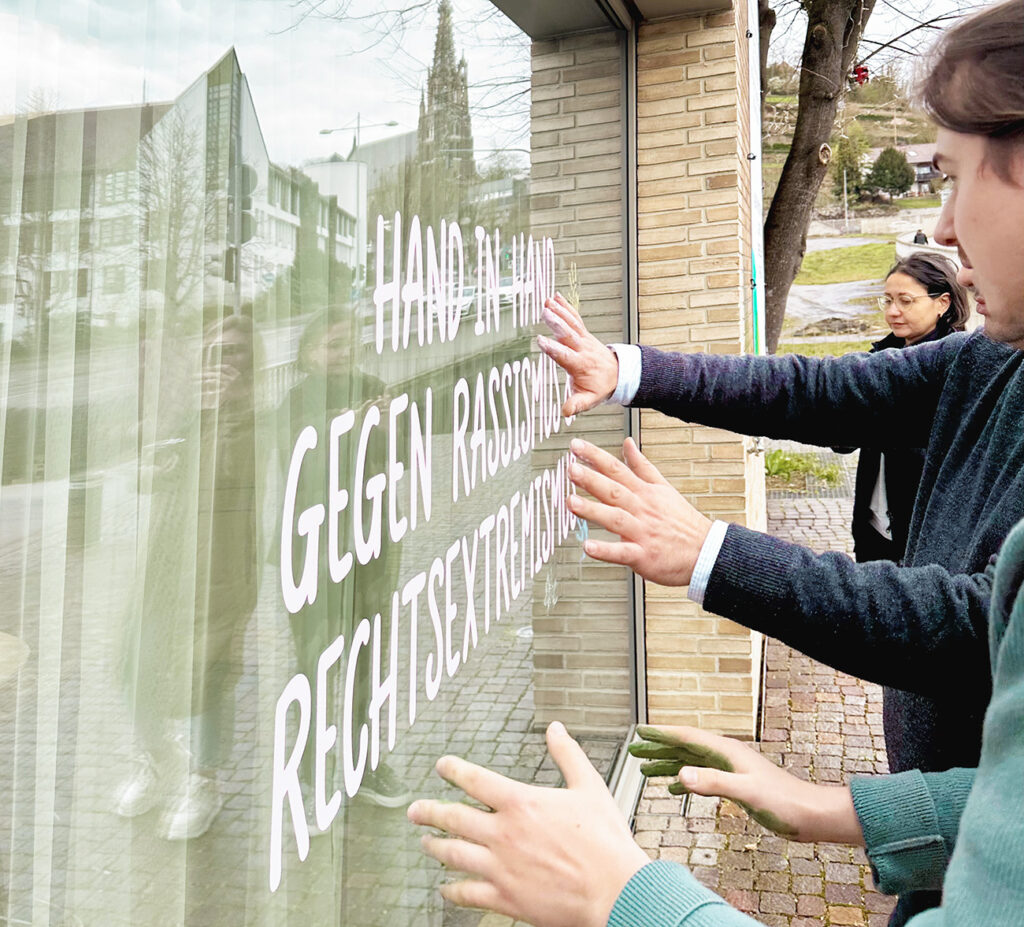 HAND IN HAND
GEGEN RASSISMUS &
RECHTSEXTREMISMUS